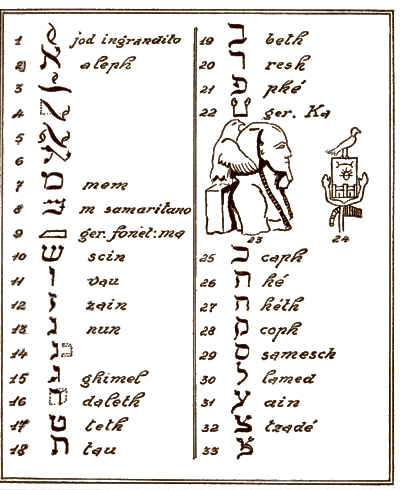 1 jod ingrandito
2) א aleph
3
4
5
6
7 ם mem
8 m samaritano
9 ger. fonèt: ma
10 ש scin
11 ו vau
12 ז zain
13 נ nun
14
15 ג ghimel
16 daleth
17 ט teth
18 ת tau
19 ב beth
20 ר resk
21 פ phé
22 ger. Ka
23
24
25 כ caph
26 ה hé
27 ח héth
28 coph
29 ס samesch
30 ל lamed
31 ע ain
32 צ tzadé
33